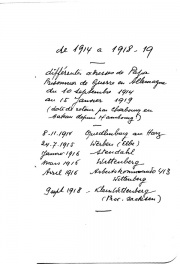 de 1914 à 1918-19
différentes adresses de Papa
Prisonnier de Guerre en Allemagne
du 10 septembre 1914
au 15 Janvier 1919
(date de retour par Cherbourg en
bateau depuis Hambourg!)
8.11.1914 Quedlinburg am Harz
24.7.1915 Werben (Elbe)
Janvier 1916 Stendahl
Mars 1916 Wittenberg
Avril 1916 Arbeitskommando 413
Wittenberg
9 sept 1918 Klein Wittenberg
(Prov. Sachsen)